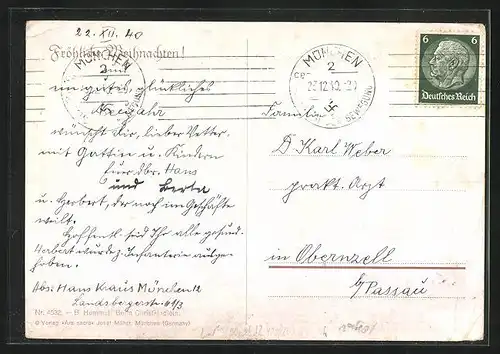 22. XII. 40
Fröhliche Weihnachten!
und
ein gutes, glückliches
Neujahr
wünscht Dir, lieber Vetter,
mit Gattin u. Kindern
Euer dbr. Hans
und Berta
u. Herbert, der noch im Geschäfte
weilt.
Hoffentl. seid Ihr alle gesund.
Herbert wurde z. Infanterie ausge-
hoben.
Abs: Hans Kraus München 12
Landsbergerstr. 49/3
Nr. 4532. – B. Hummel:
© Verlag „Ars sacra“ Josef Müller, München (Germany)
MÜNCHEN
2
BEWEGUNG
MÜNCHEN
2
BEWEGUNG
6 6
Deutsches Reich
Familie
D. Karl Weber
prakt. Arzt
in Obernzell
b/Passau